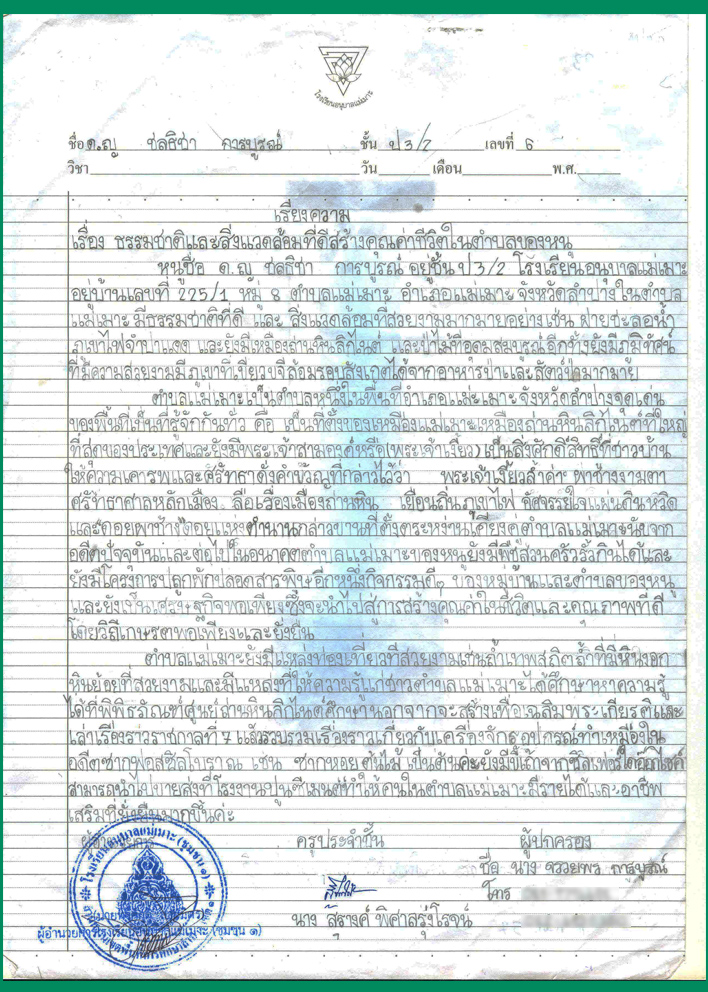 โรงเรียนอนุบาลแม่เมาะ
ชื่อ ด.ญ ชลธิชา การบูรณ์ ชั้น ป 3/2 เลขที่ 6
วิชา วัน เดือน พ.ศ.
เรียงความ
เรื่อง ธรรมชาติและสิ่งแวดล้อมที่ดีสร้างคุณค่าชีวิตในตำบลของหนู
หนูชื่อ ด.ญ ชลธิชา การบูรณ์ อยู่ชั้น ป 3/2 โรงเรียนอนุบาลแม่เมาะ
อยู่บ้านเลขที่ 225/1 หมู่ 8 ตำบลแม่เมาะ อำเภอแม่เมาะ จังหวัดลำปาง ในตำบล
แม่เมาะ มีธรรมชาติที่ดี และ สิ่งแวดล้อมที่สวยงามมากมายอย่างเช่น ฝายชะลอน้ำ
ภูเขาไฟจำปาแดด และยังมีเหมืองถ่านหินลิกไนต์ และป่าไม้ที่อุดมสมบูรณ์ อีกทั้งยังมีภูมิทัศน์
ที่มีความสวยงามมีภูเขาที่เขียวขจีล้อมรอบสังเกตได้จากอาหารป่าและสัตว์ป่ามากมาย
ตำบลแม่เมาะเป็นตำบลหนึ่งในพื้นที่อำเภอแม่เมาะจังหวัดลำปางจุดเด่น
ของพื้นที่เป็นที่รู้จักกันทั่ว คือ เป็นที่ตั้งของเหมืองแม่เมาะเหมืองถ่านหินลิกไนต์ที่ใหญ่
ที่สุดของประเทศและยังมีพระเจ้าสามองค์หรือ(พระเจ้าเงี้ยว) เป็นสิ่งศักดิ์สิทธิ์ที่ชาวบ้าน
ให้ความเคารพและศรัทธาดั่งคำขวัญที่กล่าวไว้ว่า พระเจ้าเงี้ยวล้ำค่า ผาช้างงามตา
ศรัทธาศาลหลักเมือง ลือเรื่องเมืองถ่านหิน เยือนถิ่นภูเขาไฟ อัศจรรย์ใจแผ่นดินหวิด
และดอยผาช้างดอยแห่งตำนานกล่าวขานที่ตั้งตระหง่านเคียงคู่ตำบลแม่เมาะนับจาก
อดีตปัจจุบันและต่อไปในอนาคตตำบลแม่เมาะของหนูยังมีพืชสวนครัวรั้วกินได้และ
ยังมีโครงการปลูกผักปลอดสารพิษอีกหนึ่งกิจกรรมดีๆ ของหมู่บ้านและตำบลของหนู
และยังเป็นเศรษฐกิจพอเพียงซึ่งจะนำไปสู่การสร้างคุณค่าในชีวิตและคุณภาพที่ดี
โดยวิถีเกษรตพอเพียงและยั่งยืน
ตำบลแม่เมาะยังมีแหล่งท่องเที่ยวที่สวยงามเช่นถ้ำเทพสถิตถ้ำที่มีหินงอก
หินย้อยที่สวยงามและมีแหล่งที่ให้ความรู้แก่ชาวตำบลแม่เมาะได้ศึกษาหาความรู้
ได้ที่พิพิธภัณฑ์ศูนย์ถ่านหินลิกไนต์ศึกษานอกจากจะสร้างเพื่อเฉลิมพระเกียรติและ
เล่าเรื่องราวราชกาลที่ 7 แล้วรวบรวมเรื่องราวเกี่ยวกับเครื่องจักรอุปกรณ์ทำเหมืองใน
อดีตซากฟอสซิลโบราณ เช่น ซากหอย ต้นไม้ เป็นต้นค่ะยังมีขี้เถ้าจากซัลเฟอร์ไดอ๊อกไซค์
สามารถนำไปขายส่งที่โรงงานปูนซีเมนต์ทำให้คนในตำบลแม่เมาะมีรายได้และอาชีพ
เสริมที่ยั่งยืนมากขึ้นค่ะ
ผู้อำนวยการ ครูประจำชั้น ผู้ปกครอง
ชื่อ นาง จวรยพร การบูรณ์
โทร
นาง สุรางค์ พิศาลรุ่งโรจน์
โรงเรียนอนุบาลแม่เมาะ (ชุมชน ๑)
ผู้อำนวยการโรงเรียนอนุบาลแม่เมาะ (ชุมชน ๑)